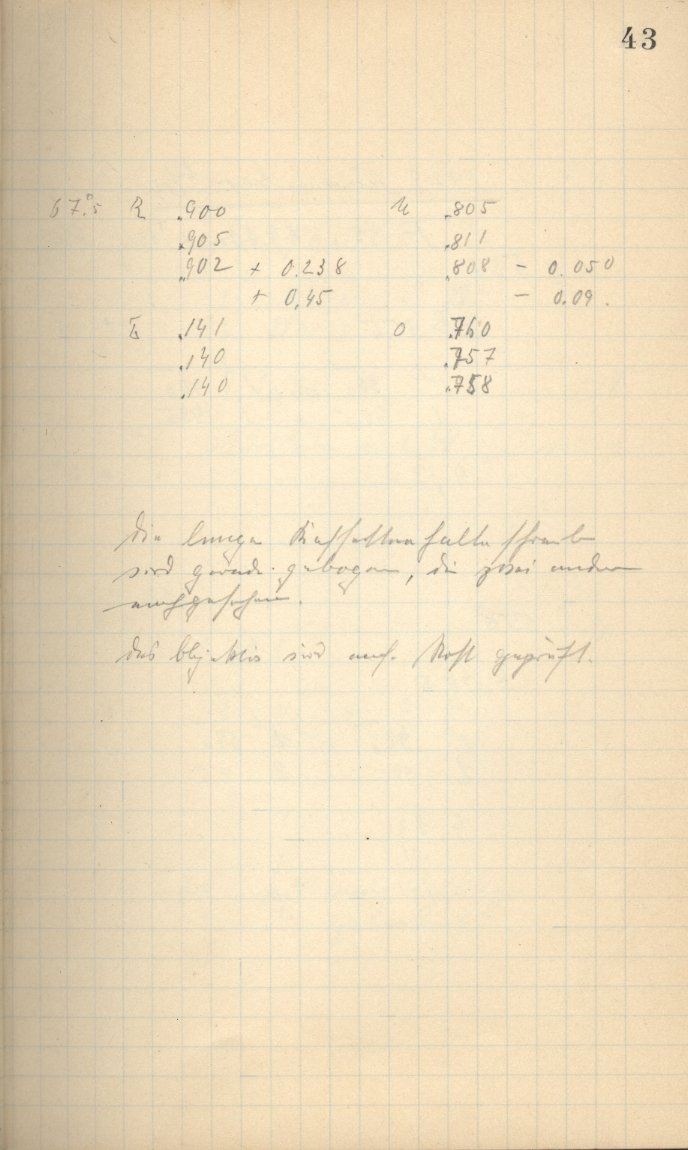 43
67.°5 R .900 U .805
.905 .811
.902 + 0.238 .808 - 0.050
+ 0.45 - 0.09.
L .141 O .760
.140 .757
.140 .758
Die lange schraube
wird gerade gebogen, die zwei andern
nachgesehen.
Das Objektiv wird auf Rost geprüft.